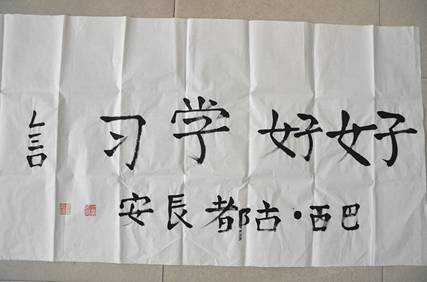 好好学习言
巴西·古都長安